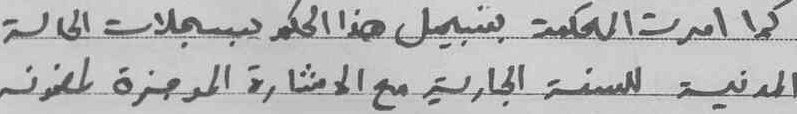 كما امرت المحكمة بتسجيل هذا الحكم بسجلات الحالة
المدنية للسنة الجارية مع الاشارة الموجزة لمضمونه